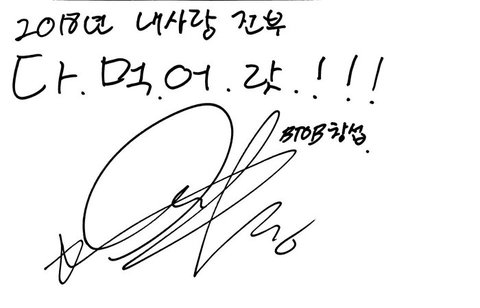 2018년 내사랑 전부
다.먹.어.랏.!!!
BTOB 창섭.